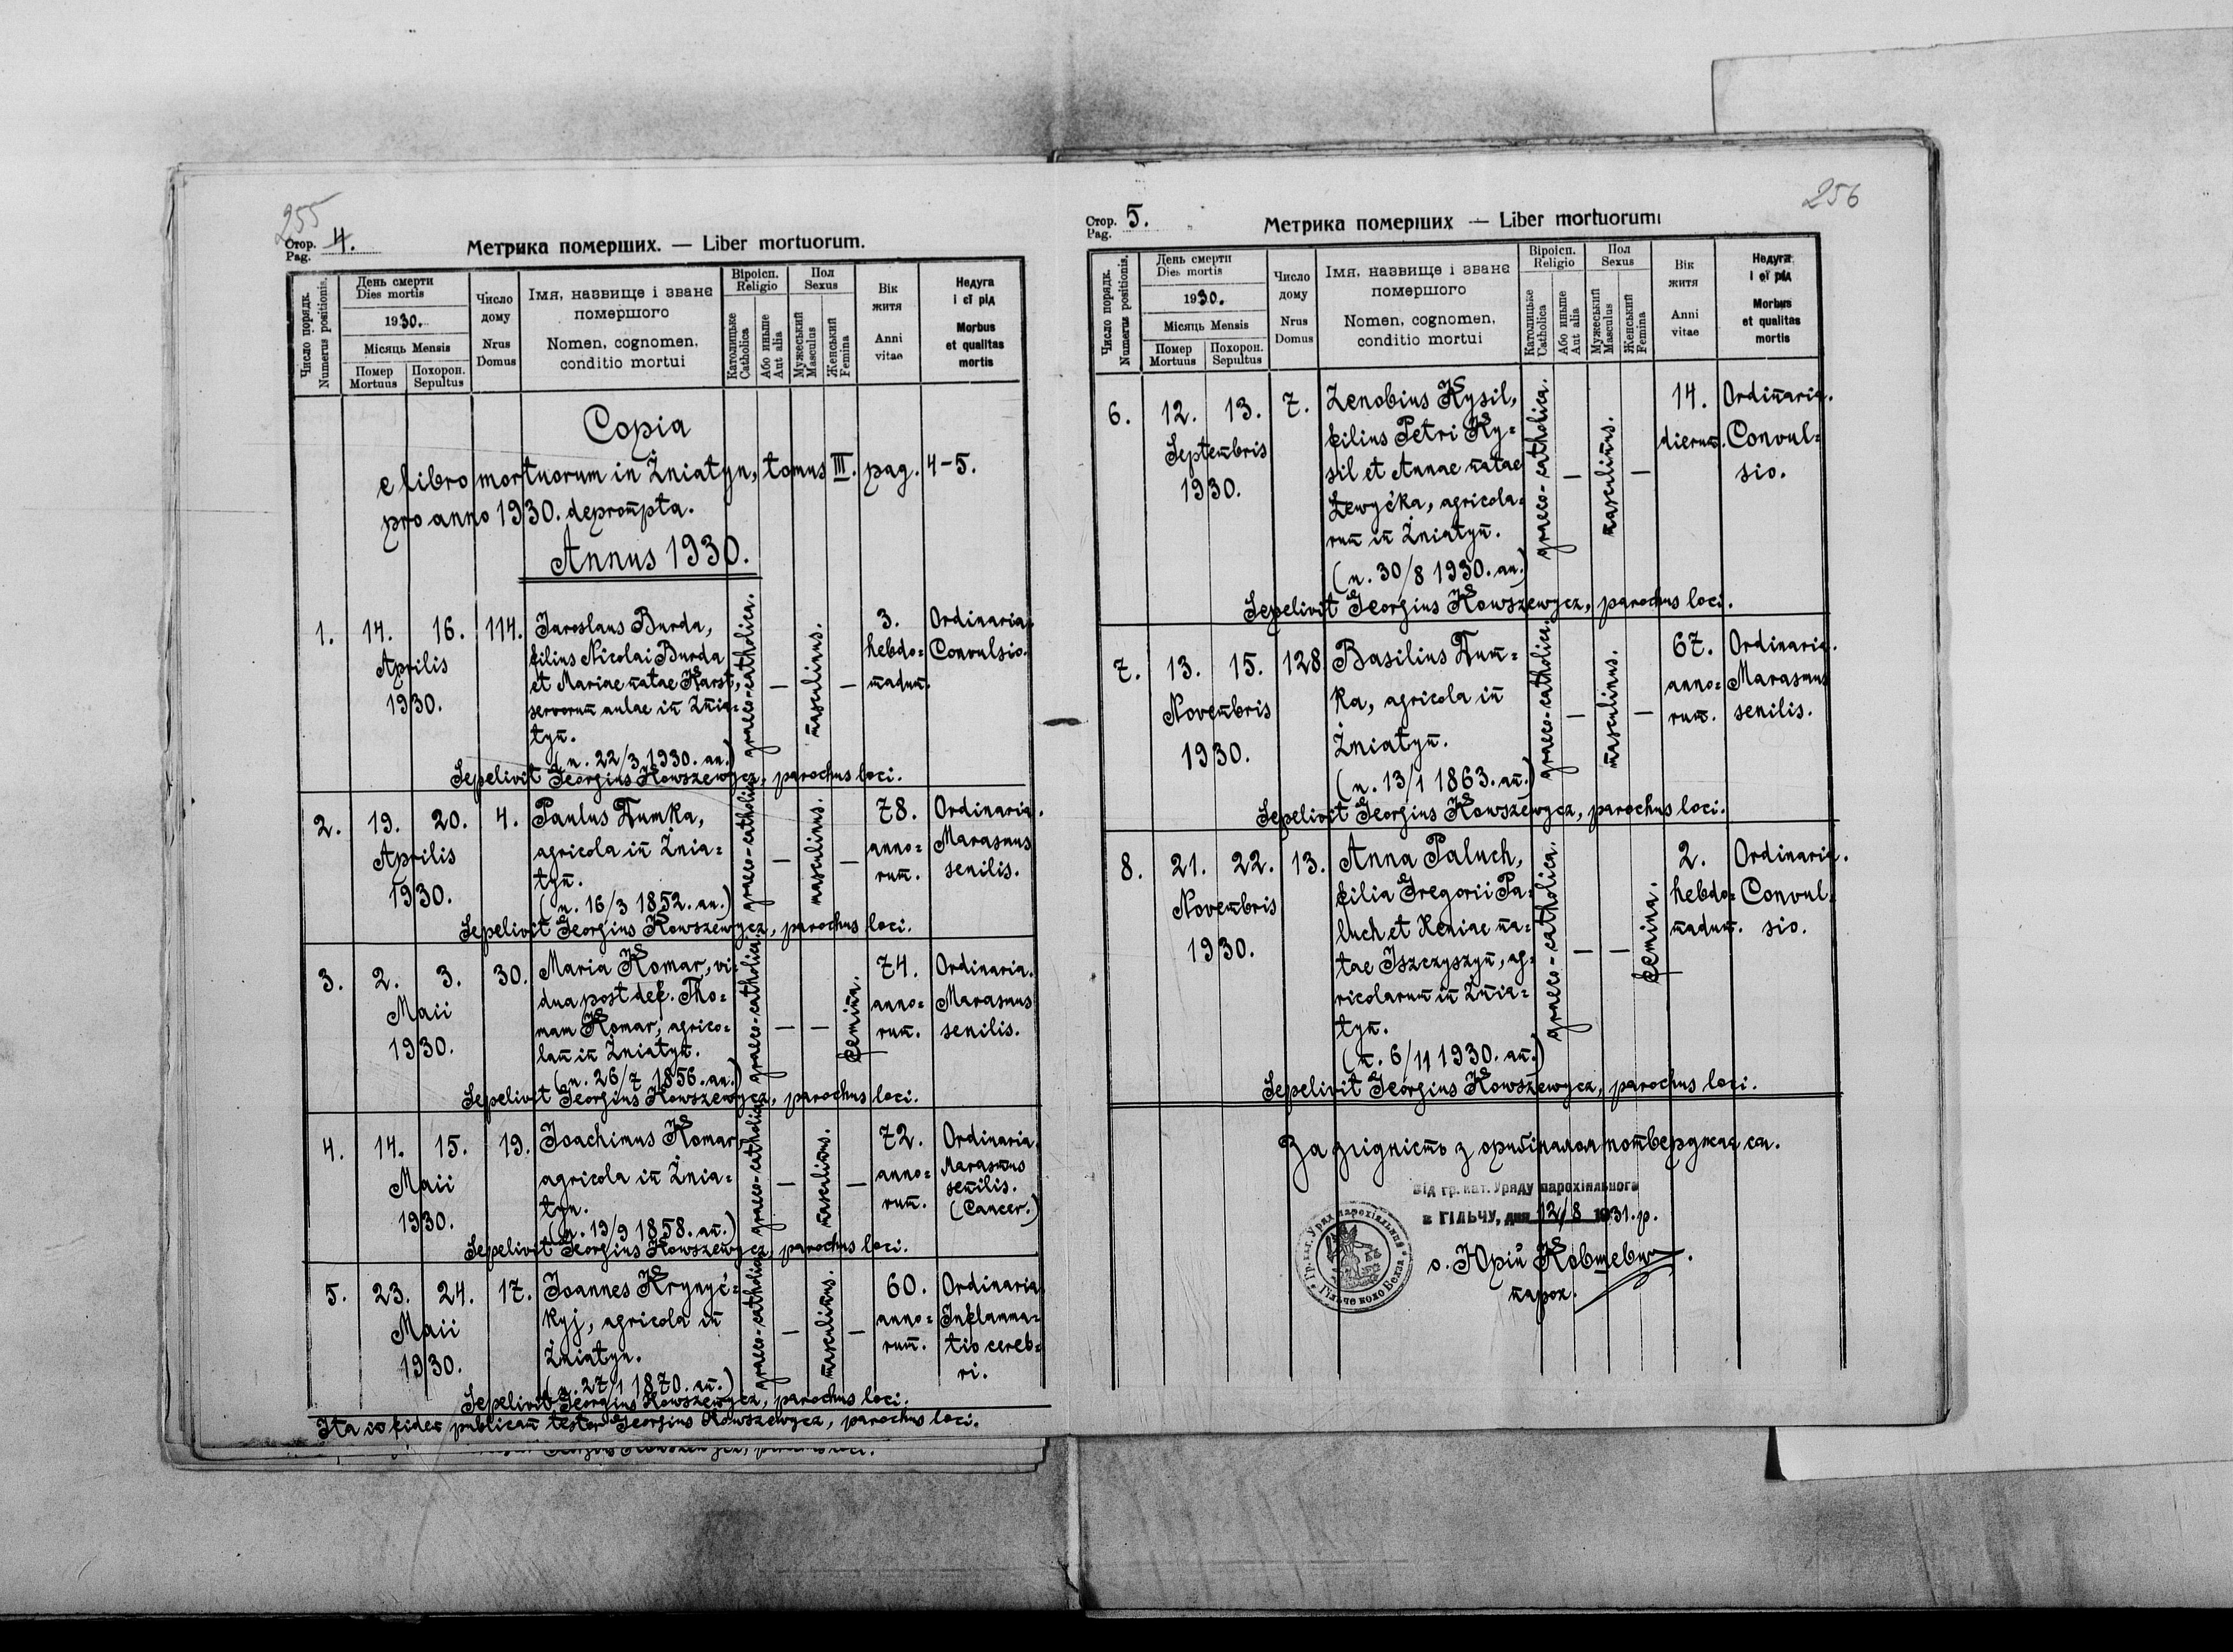 255
Стор. 4.
Pag.
Метрика померших. — Liber mortuorum.
Число порядк.
Numerus positionis.
День смерти
Dies mortis
1930.
Місяць Mensis
Помер
Mortuus
Похорон.
Sepultus
Число
дому
Nrus
Domus
Імя, назвище і званє
помершого
Nomen, cognomen,
conditio mortui
Віроісп.
Religio
Католицьке
Catholica
Або инъше
Aut alia
Пол
Sexus
Мужеський
Masculus
Женський
Femina
Вік
житя
Anni
vitae
Недуга
і єї рід
Morbus
et qualitas
mortis
Copia
e libro mortuorum in Żniatyn, tomus III. pag. 4-5.
pro anno 1930. deprompta.
Annus 1930.
1. 14. 16. 114. Jaroslaus Burda, graeco-catholica. — masculinus. — 3. Ordinaria.
Aprilis filius Nicolai Burda hebdo= Convulsio.
1930. et Mariae natae Karst, madum.
servorum aulae in Żnia=
tyn.
(n. 22/3 1930. an.)
Sepelivit Georgius Kowszewycz, parochus loci.
2. 19. 20. 4. Paulus Dumka, graeco-catholica — masculinus. — 78. Ordinaria.
Aprilis agricola in Żnia= anno= Marasmus
1930. tyn. rum. senilis.
(n. 16/3 1852. an.)
Sepelivit Georgius Kowszewycz, parochus loci.
3. 2. 3. 30. Maria Komar, vi= graeco-catholica. — — femina. 74. Ordinaria.
Maii dua post def. Tho= anno= Marasmus
1930. mam Komar, agrico= rum. senilis.
lam in Żniatyn.
(n. 26/7 1856. an.)
Sepelivit Georgius Kowszewycz, parochus loci.
4. 14. 15. 19. Joachimus Komar, graeco-catholica — masculinus. — 72. Ordinaria.
Maii agricola in Żnia= anno= Marasmus
1930. tyn. rum. senilis.
(n. 19/9 1858. an.) (Cancer.)
Sepelivit Georgius Kowszewycz, parochus loci.
5. 23. 24. 17. Joannes Krynyć= graeco-catholica — masculinus. — 60. Ordinaria.
Maii kyj, agricola in anno= Inflamma=
1930. Żniatyn. rum. tio cereb=
(n. 27/1 1870. an.) ri.
Sepelivit Georgius Kowszewycz, parochus loci.
Ita in fidem publicam testor Georgius Kowszewycz, parochus loci.
256
Стор. 5.
Pag.
Метрика померших — Liber mortuorum
Число порядк.
Numerus positionis.
День смерти
Dies mortis
1930.
Місяць Mensis
Помер
Mortuus
Похорон.
Sepultus
Число
дому
Nrus
Domus
Імя, назвище і званє
помершого
Nomen, cognomen,
conditio mortui
Віроісп.
Religio
Католицьке
Catholica
Або инъше
Aut alia
Пол
Sexus
Мужеський
Masculus
Женський
Femina
Вік
житя
Anni
vitae
Недуга
і єї рід
Morbus
et qualitas
mortis
6. 12. 13. 7. Zenobius Kysil, graeco-catholica. — masculinus. — 14. Ordinaria.
Septembris filius Petri Ky= dierum. Convul=
1930. sil et Annae natae sio.
Lewyćka, agricola=
rum in Żniatyn.
(n. 30/8 1930. an.)
Sepelivit Georgius Kowszewycz, parochus loci.
7. 13. 15. 128 Basilius Dum= graeco-catholica. — masculinus. — 67. Ordinaria.
Novembris ka, agricola in anno= Marasmus
1930. Żniatyn. rum. senilis.
(n. 13/1 1863. an.)
Sepelivit Georgius Kowszewycz, parochus loci.
8. 21. 22. 13. Anna Paluch, graeco-catholica. — — femina. 2. Ordinaria.
Novembris filia Gregorii Pa= hebdo= Convul=
1930. luch et Xeniae na= madum. sio.
tae Iszczyszyn, ag=
ricolarum in Żnia=
tyn.
(n. 6/11 1930. an.)
Sepelivit Georgius Kowszewycz, parochus loci.
За згідність з оригіналом потверджая ся.
Від гр. кат. Уряду парохіяльного
в ГІЛЬЧУ, дня 12/8 1931. р.
о. Юрій Ковшевич.
парох.